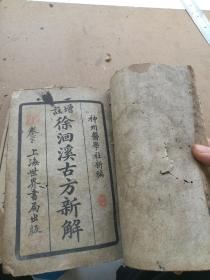 神州醫學社新編
增註
徐洄溪古方新解
卷下
上海世界書局出版